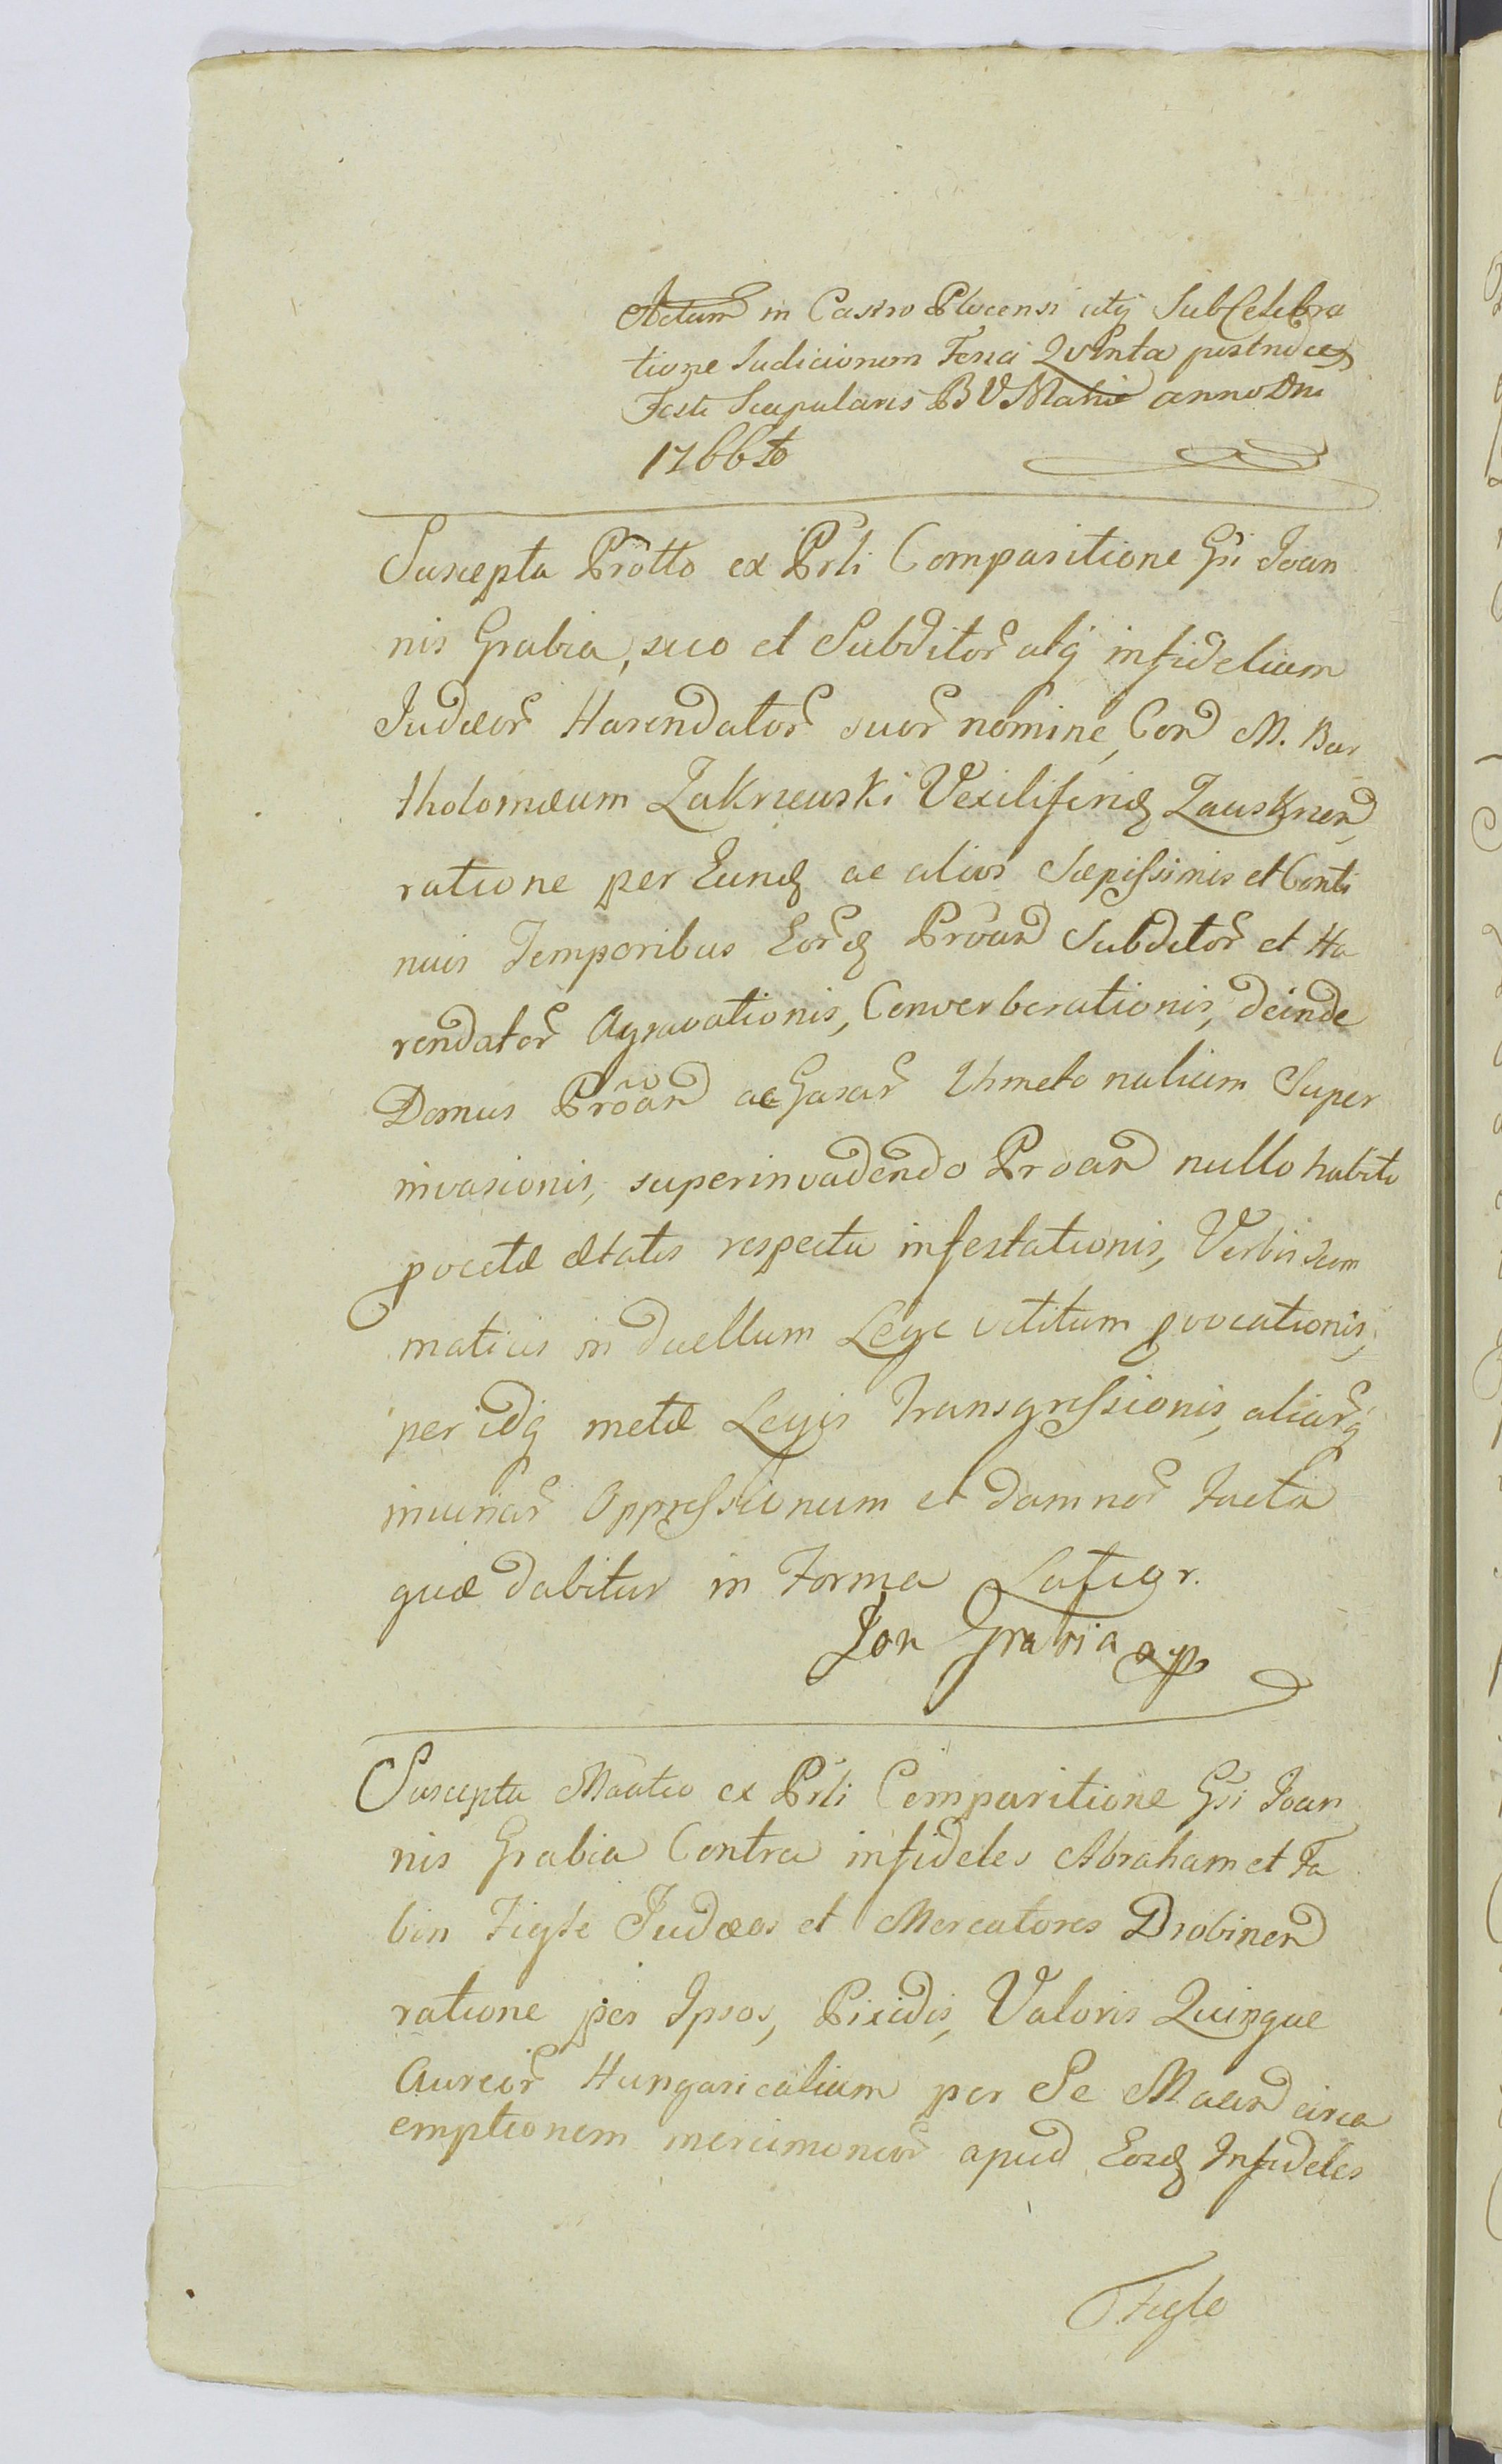 Actum in Castro Plocensi atq Sub Celebra
tione Iudiciorum Feria Quinta postridie
Festi Scapularis B V Mariæ anno Dni
1766to
Suscepta Protto ex Prli Comparitione Gsi Joan
nis Grabia, suo et Subditor atq infidelium
Judæor Harendator suor nomine, Cond M. Bar
tholomæum Zakrzewski Vexiliferid Zauskrzen,
ratione per Eund ac alios sæpissimis et Conti
nuis Temporibus Eord Proan Subditor et Ha
rendator Agravationis, Converberationis, deinde
Domus Proan ac Gazar Khmetonalium Super
invasionis, superinvadendo Proan nullo habito
provectæ ætatis respectu infestationis, Verbis dom
maticis in duellum Lege vetitum provocationis,
per idq metæ Legis Transgressionis, aliarq
iniuriar Oppressionum et damnor facta
quæ dabitur in Forma Latior.
Jan Grabia mp
Suscepta Maatio ex Prli Comparitione Gsi Joan
nis Grabia Contra infideles Abraham et Fa
bin Figle Judæos et Mercatores Drobinen
ratione per Ipsos, Pixidis, Valoris Quinque
Aureor Hungaricalium per Se Maan circa
emptionem mercimonior apud Eosd Infideles
Figle